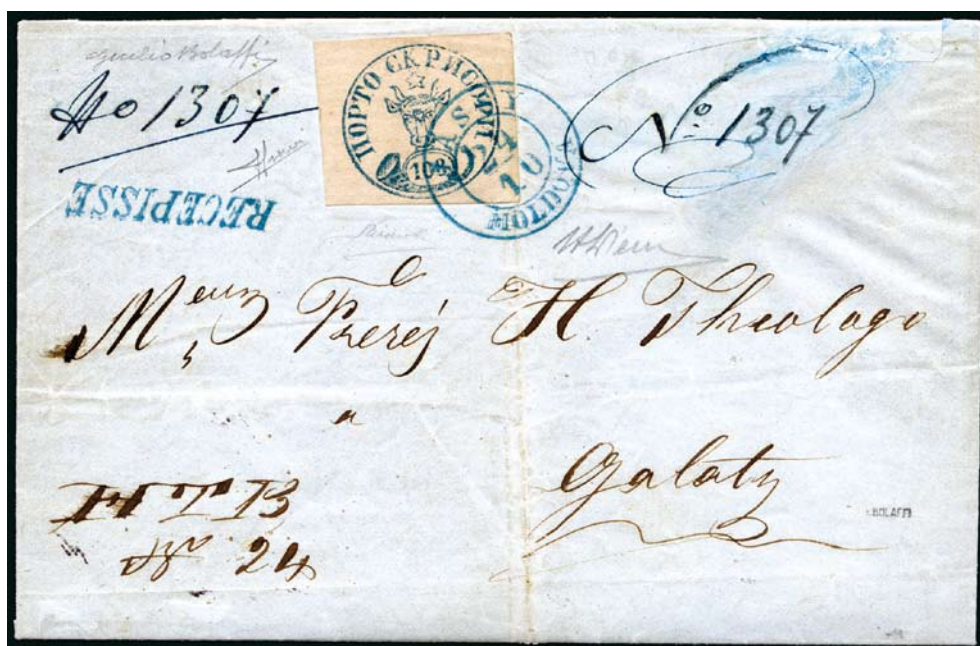 Giulio Bolaffi
No 1307
RECEPISSE
ПОРТО СКРИСОРИ
108
MOLDOVA
10
No 1307
Meurs Frerés H. Theologo
a
Galatz
H T B
No 24
BOLAFFI